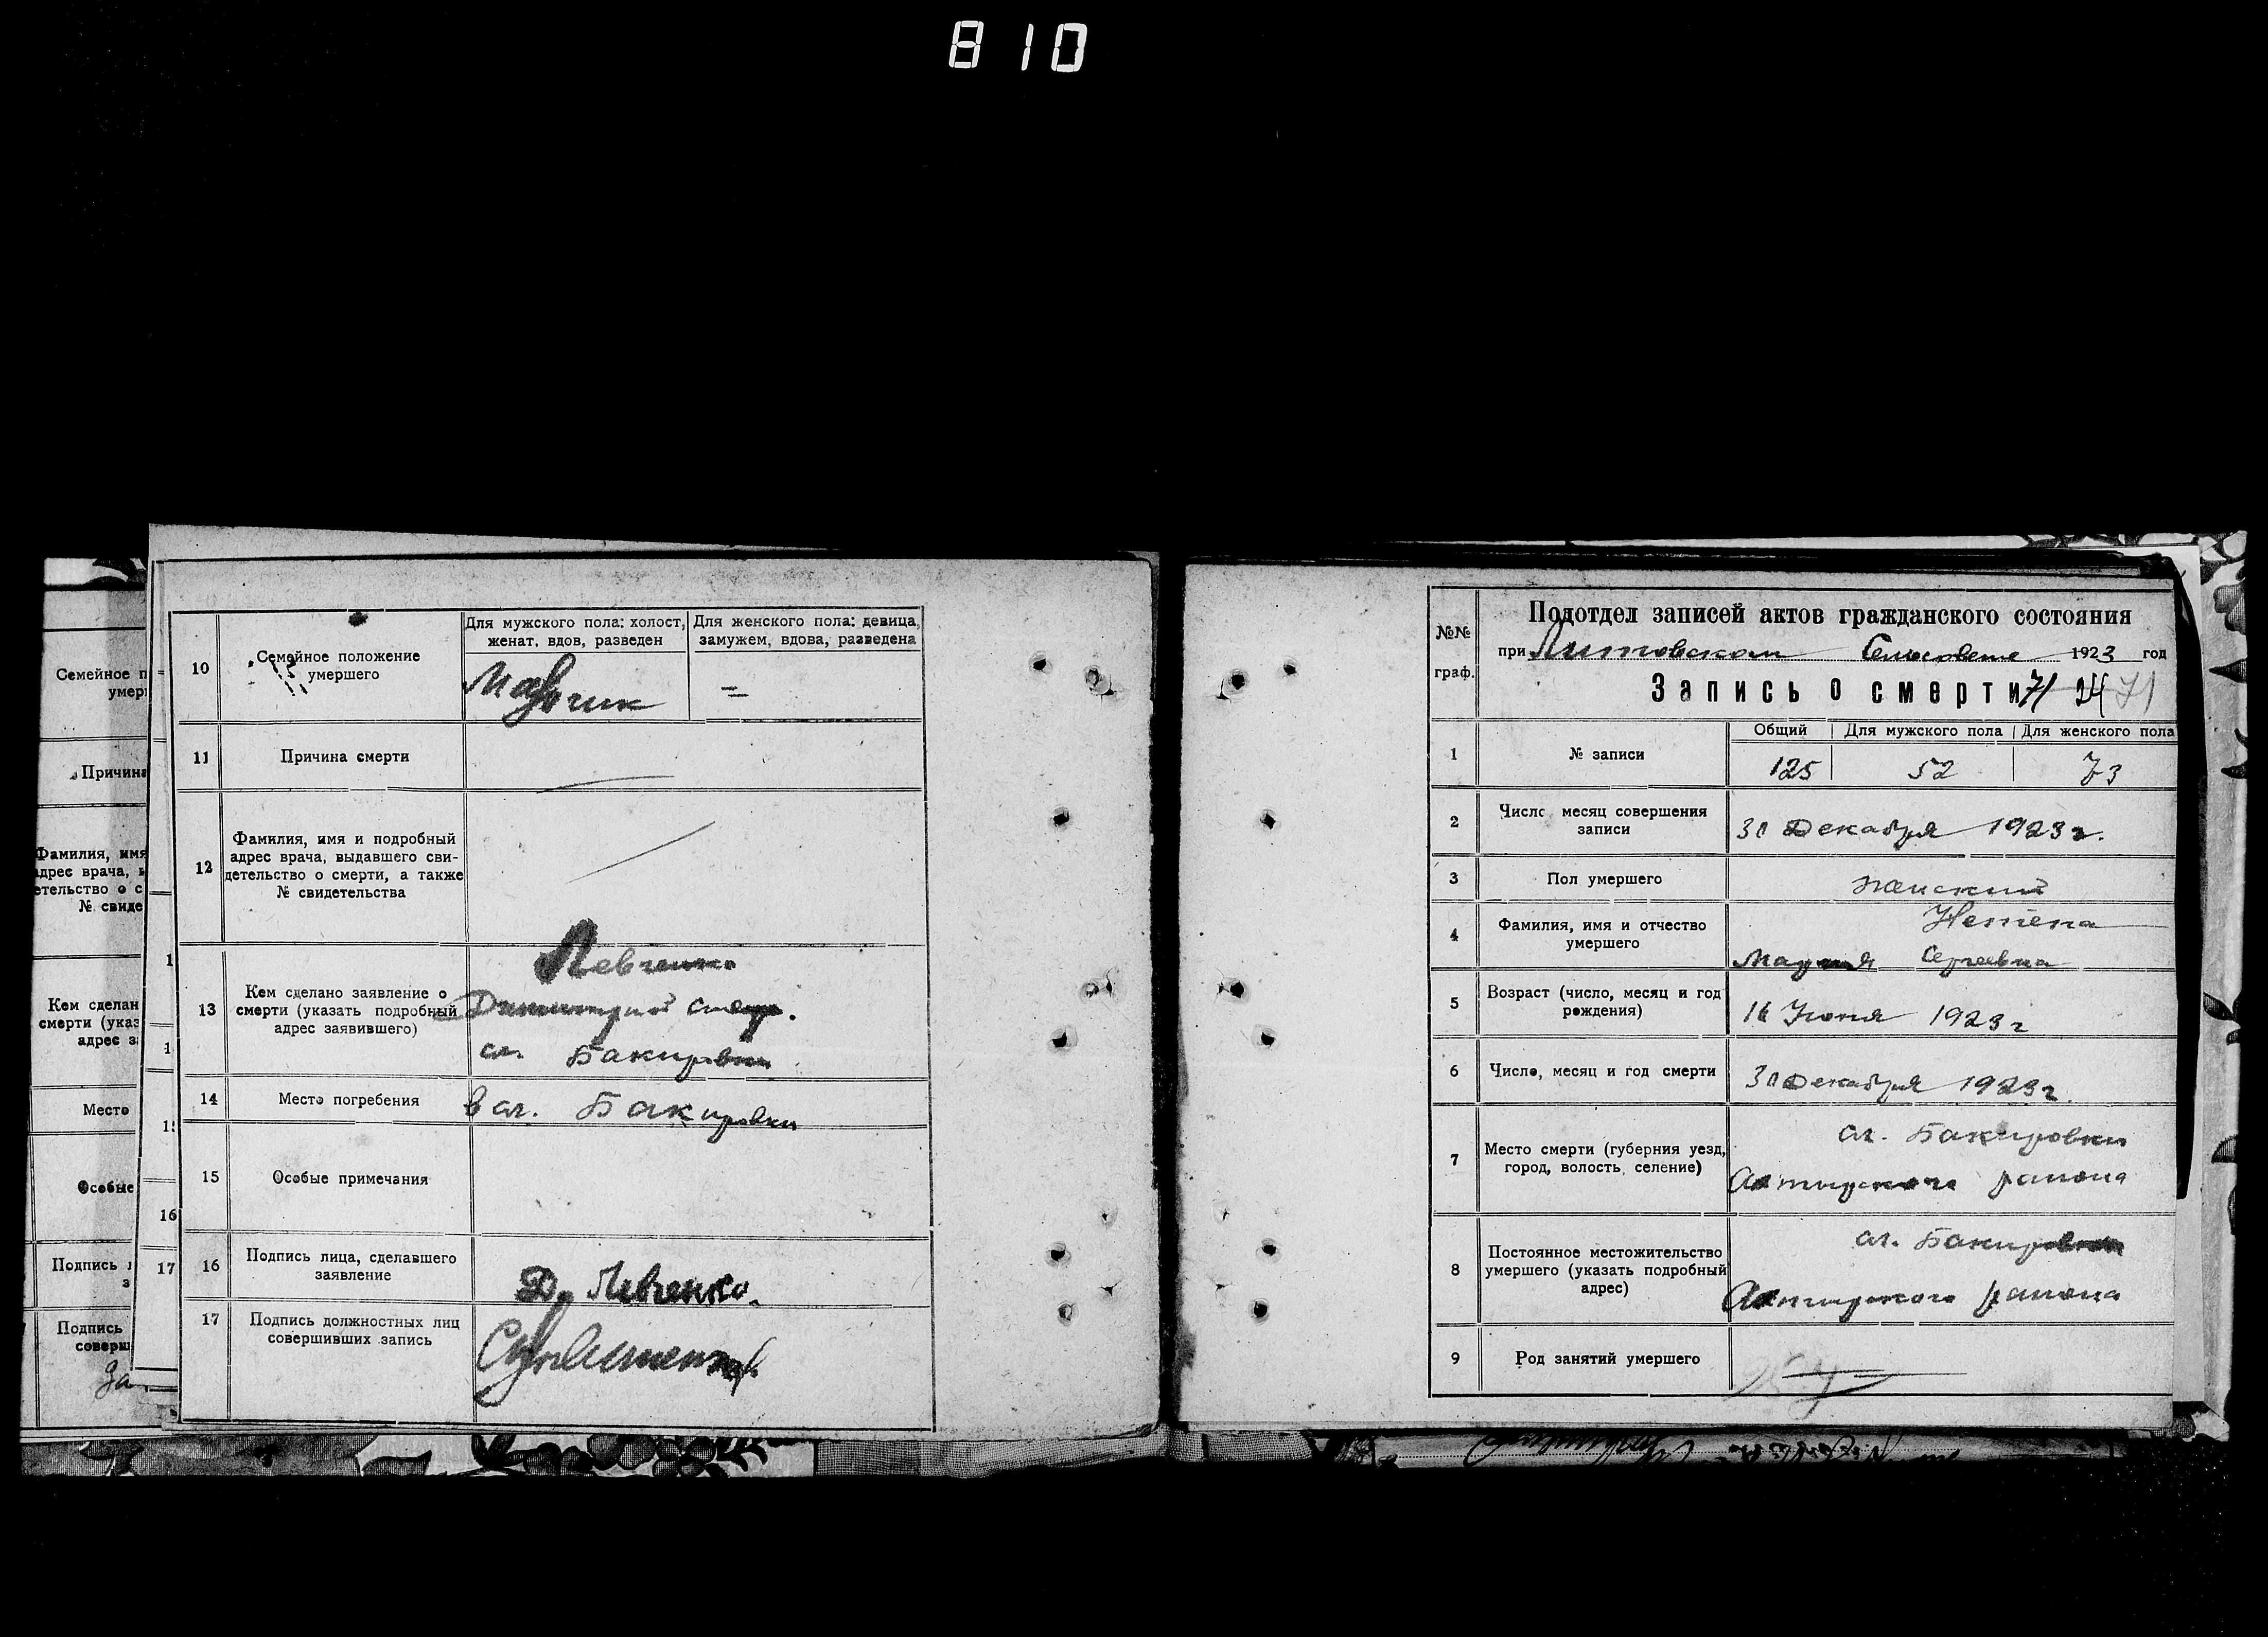 810
Семейное п
умер
Причина
Фамилия, имя
адрес врача, в
етельство о с
№ свиде
Кем сделан
смерти (указ
адрес з
Место
Особые
Подпись л
з
Подпись
соверш
За
1
1
15
16
17
10
Семейное положение
умершего
Для мужского пола: холост,
женат, вдов, разведен
Для женского пола: девица,
замужем, вдова, разведена
Мальчик
=
11
Причина смерти
12
Фамилия, имя и подробный
адрес врача, выдавшего сви-
детельство о смерти, а также
№ свидетельства
13
Кем сделано заявление о
смерти (указать подробный
адрес заявившего)
Левченко
Димитрий
сл. Бакировки
14
Место погребения
в сл. Бакировки
15
Особые примечания
16
Подпись лица, сделавшего
заявление
Д. Левченко.
17
Подпись должностных лиц
совершивших запись
№№
граф.
Подотдел записей актов гражданского состояния
при Литовском Сельсовете 1923 год
Запись о смерти 71 24 71
1
№ записи
Общий
Для мужского пола
Для женского пола
125
52
73
2
Число месяц совершения
записи
31 Декабря 1923 г.
3
Пол умершего
женский
4
Фамилия, имя и отчество
умершего
Мария Сергеевна
5
Возраст (число, месяц и год
рождения)
16 Июня 1923 г
6
Число, месяц и год смерти
30 Декабря 1923 г.
7
Место смерти (губерния уезд,
город, волость, селение)
сл. Бакировки
Ахтирского района
8
Постоянное местожительство
умершего (указать подробный
адрес)
сл. Бакировки
Ахтирского района
9
Род занятий умершего